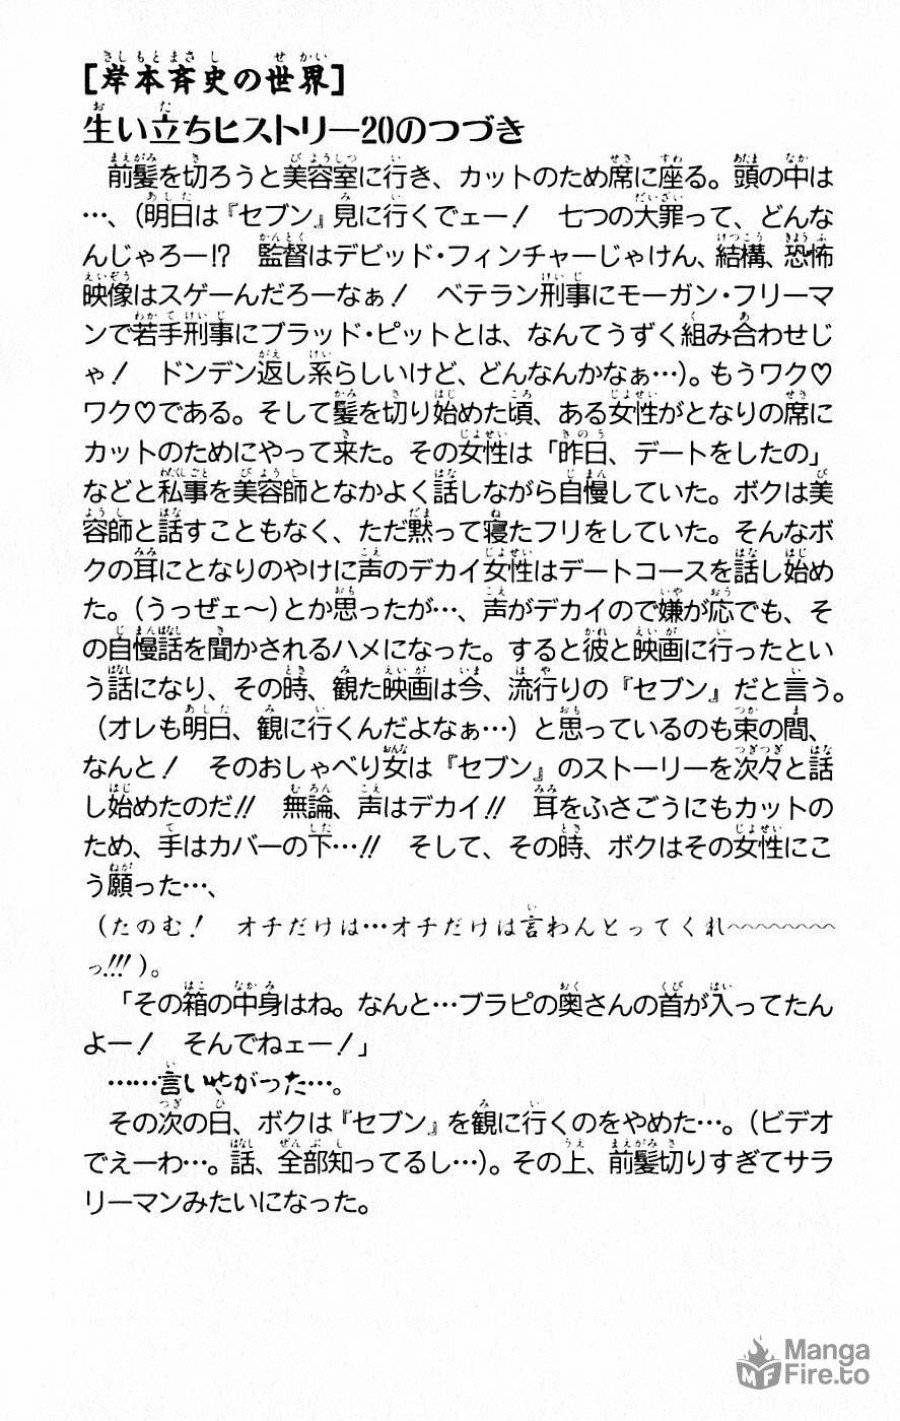 [岸本斉史の世界]
生い立ちヒストリー20のつづき
前髪を切ろうと美容室に行き、カットのため席に座る。頭の中は
…、(明日は『セブン』見に行くでェー！　七つの大罪って、どんな
んじゃろー!?　監督はデビッド・フィンチャーじゃけん、結構、恐怖
映像はスゲーんだろーなぁ！　ベテラン刑事にモーガン・フリーマ
ンで若手刑事にブラッド・ピットとは、なんてうずく組み合わせじ
ゃ！　ドンデン返し系らしいけど、どんなんかなぁ…)。もうワク♡
ワク♡である。そして髪を切り始めた頃、ある女性がとなりの席に
カットのためにやって来た。その女性は「昨日、デートをしたの」
などと私事を美容師となかよく話しながら自慢していた。ボクは美
容師と話すこともなく、ただ黙って寝たフリをしていた。そんなボ
クの耳にとなりのやけに声のデカイ女性はデートコースを話し始め
た。(うっぜェ〜)とか思ったが…、声がデカイので嫌が応でも、そ
の自慢話を聞かされるハメになった。すると彼と映画に行ったとい
う話になり、その時、観た映画は今、流行りの『セブン』だと言う。
(オレも明日、観に行くんだよなぁ…)と思っているのも束の間、
なんと！　そのおしゃべり女は『セブン』のストーリーを次々と話
し始めたのだ!!　無論、声はデカイ!!　耳をふさごうにもカットの
ため、手はカバーの下…!!　そして、その時、ボクはその女性にこ
う願った…、
(たのむ！　オチだけは…オチだけは言わんとってくれ〜〜〜〜〜〜〜〜
っ!!!)。
「その箱の中身はね。なんと…ブラピの奥さんの首が入ってたん
よー！　そんでねェー！」
……言いやがった…。
その次の日、ボクは『セブン』を観に行くのをやめた…。(ビデオ
でえーわ…。話、全部知ってるし…)。その上、前髪切りすぎてサラ
リーマンみたいになった。
Manga
Fire.to